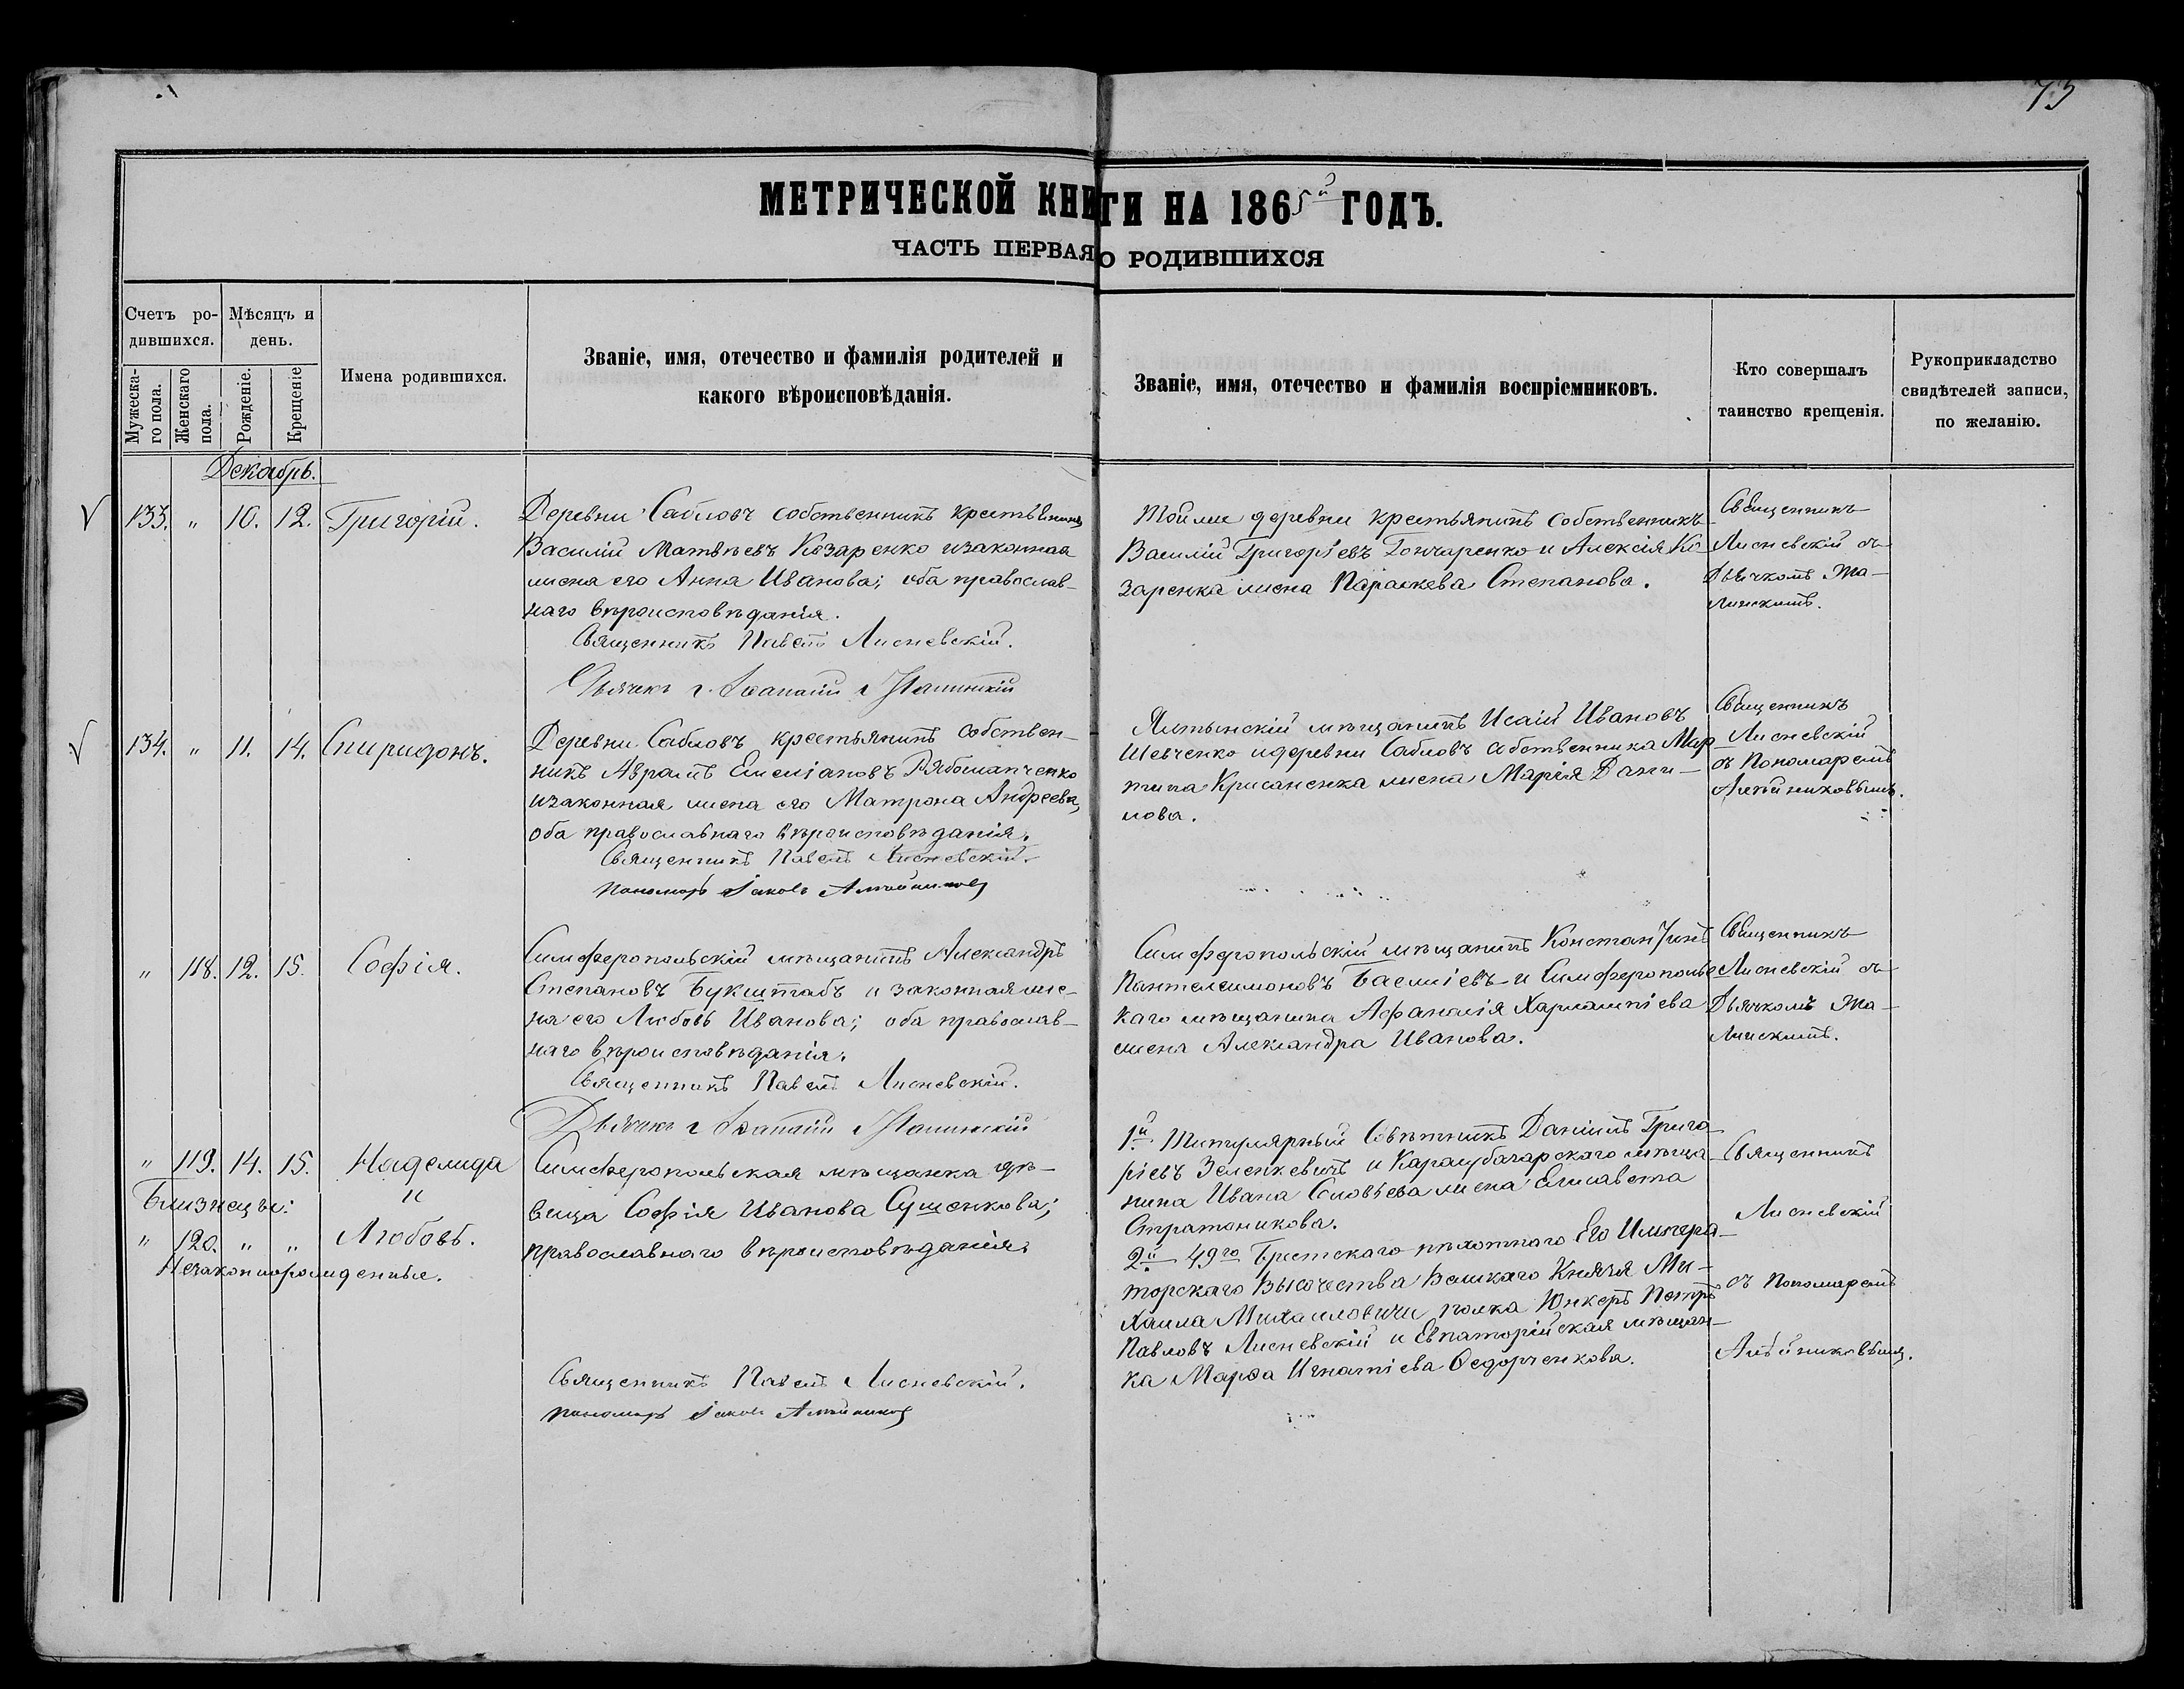 73
МЕТРИЧЕСКОЙ КНИГИ НА 1865й ГОДЪ.
ЧАСТЬ ПЕРВАЯ О РОДИВШИХСЯ
Счетъ родившихся.
Мужескаго пола.
Женскаго пола.
Мѣсяцъ и день.
Рожденіе.
Крещеніе
Имена родившихся.
Званіе, имя, отечество и фамилія родителей и
какого вѣроисповѣданія.
Званіе, имя, отечество и фамилія воспріемниковъ.
Кто совершалъ
таинство крещенія.
Рукоприкладство
свидѣтелей записи,
по желанію.
Декабрь.
133. " 10. 12. Григорій.
Деревни Сабловъ собственникъ крестьянинъ
Василій Матвѣевъ Козаренко и законная
жена его Анна Иванова; оба православ-
наго вѣроисповѣданія.
Священникъ Павелъ Лисневскій.
Дьячекъ
Тойже деревни крестьянинъ собственникъ
Василій Григорьевъ Гончаренко и Алексія Ко-
заренка жена Параскева Степанова.
Священникъ
Лисневскій съ
Дьячкомъ
134. " 11. 14. Спиридонъ.
Деревни Сабловъ крестьянинъ собствен-
никъ Аврамъ Емеліановъ Рябошапченко
и законная жена его Матрона Андреева,
оба православнаго вѣроисповѣданія.
Священникъ Павелъ Лисневскій.
Пономарь Іаковъ Алейниковъ
Ялтынскій мѣщанинъ Исаій Ивановъ
Шевченко и деревни Сабловъ собственника Мар-
тина Крисаненка жена Марія Дани-
лова.
Священникъ
Лисневскій
съ Пономаремъ
Алейниковымъ.
" 118. 12. 15. Софія.
Симферопольскій мѣщанинъ Александръ
Степановъ Букштабъ и законная же-
на его Любовь Иванова; оба православ-
наго вѣроисповѣданія.
Священникъ Павелъ Лисневскій.
Дьячекъ
Симферопольскій мѣщанинъ Константинъ
Пантелеимоновъ и Симферопольс-
каго мѣщанина Афанасія Харлампіева
жена Александра Иванова.
Священникъ
Лисневскій съ
Дьячкомъ
" 119. 14. 15. Надежда
Близнецы: и
" 120. " " Любовь.
Незаконнорожденные.
Симферопольская мѣщанка дѣ-
вица Софія Иванова Сушенкова;
православнаго вѣроисповѣданія.
Священникъ Павелъ Лисневскій.
Пономарь Іаковъ Алейниковъ
1й Титулярный Совѣтникъ Даніилъ Григо-
ріевъ Зеленкевичъ и Карасубазарскаго мѣща-
нина Ивана Соловьева жена Елисавета
Стратоникова.
2й 49го Брестскаго пѣхотнаго Его Импера-
торскаго Высочества Великаго Князя Ми-
хаила Михаиловича полка Юнкеръ Петръ
Павловъ Лисневскій и Евпаторійская мѣщан-
ка Марфа Игнатіева Ѳедорченкова.
Священникъ
Лисневскій
съ Пономаремъ
Алейниковымъ.